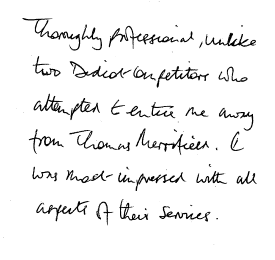 Thoroughly professional, unlike
two Didcot competitors who
attempted to entice me away
from Thomas Merrifield. I
was most impressed with all
aspects of their services.